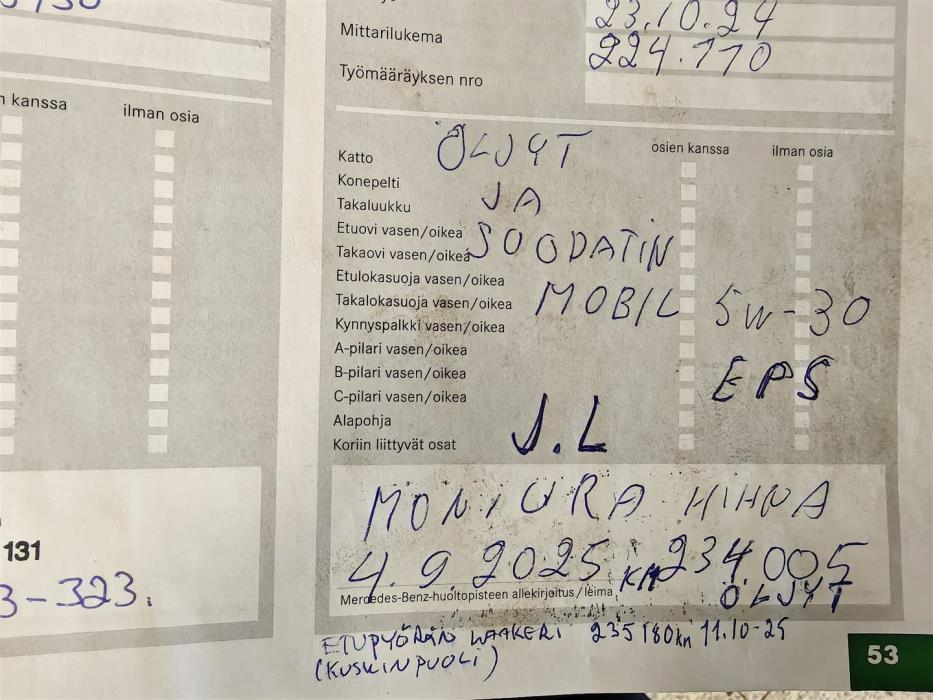 23.10.24
Mittarilukema
224.110
Työmääräyksen nro
kanssa
ilman osia
ÖLJYT
osien kanssa
ilman osia
Katto
Konepelti
JA
Takaluukku
Etuovi vasen/oikea
SOODATIN
Takaovi vasen/oikea
Etulokasuoja vasen/oikea
MOBIL 5W-30
Takalokasuoja vasen/oikea
Kynnyspalkki vasen/oikea
A-pilari vasen/oikea
EPS
B-pilari vasen/oikea
C-pilari vasen/oikea
Alapohja
J.L
Koriin liittyvät osat
MONIURA HIHNA
131
4.9 2025 KM 234.005
3-323.
Mercedes-Benz-huoltopisteen allekirjoitus/leima
ÖLJYT
ETUPYÖRÄN LAAKERI 235180km 11.10-25
(KUSKINPUOLI)
53